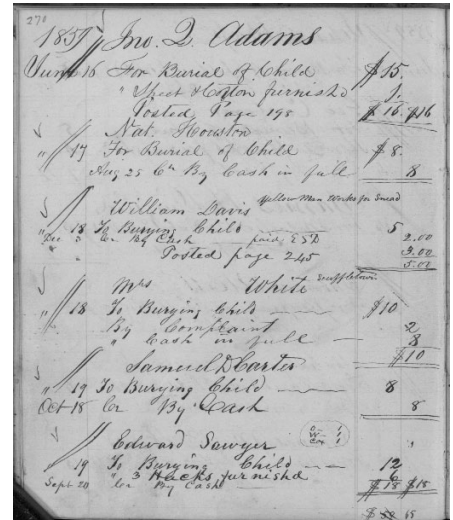 270
1857 Jno. Q. Adams
June 16 For Burial of Child $15.
" Sheet & Cotton furnished 1.
Posted Page 198 $16. $16
Nat. Houston
" 17 For Burial of Child $8.
Aug 25 Cr By Cash in full 8
William Davis Yellow Man Works for Snead
" 18 To Burying Child 5
Dec " Cr By Cash paid ESD 2.00
Posted page 245 3.00
5.00
Mrs White Scuffletown
" 18 To Burying Child $10
By Complaint 2
" Cash in full 8
$10
Samuel D Carter
" 19 To Burying Child 8
Oct 18 Cr By Cash 8
Edward Sawyer
" 19 To Burying Child 12
" 3 Hacks furnished 6
Sept 20 Cr By Cash $18 $18